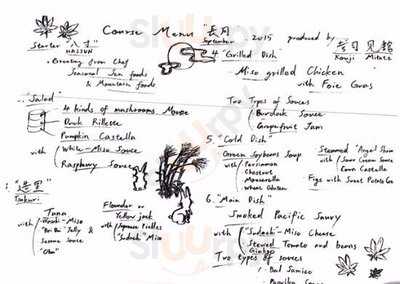 Course Menu "長月"
September 2015 produced by
Kouji Mitate
Starter "八寸"
HASSUN
Greeting from Chef
Seasonal Jan foods
& Mountain foods
"Salad"
4 kinds of mushrooms Mousse
Duck Rillette
Pumpkin Castella
with White-Miso Sauce
Raspberry Sauce
"造里"
Tsukuri
Tuna
with
Jelly &
Sauce
Flounder or
Yellow jack
with Japanese Pickles
"Sudachi" Miso
4 "Grilled Dish"
Miso grilled Chicken
with Foie Gras
Two Types of Sauces
Burdock Sauce
Grapefruit Jam
5. "Cold Dish"
Green Soybeans Soup
with Persimmon
Chestnut
Mozzarella
Steamed
with Sour Cream Sauce
Corn Castella
Figs with Sweet Potato
6. "Main Dish"
Smoked Pacific Saury
with "Sudachi"-Miso Cheese
Stewed Tomato and beans
Ginkgo
Two types of sauces
Balsamico
Sauce